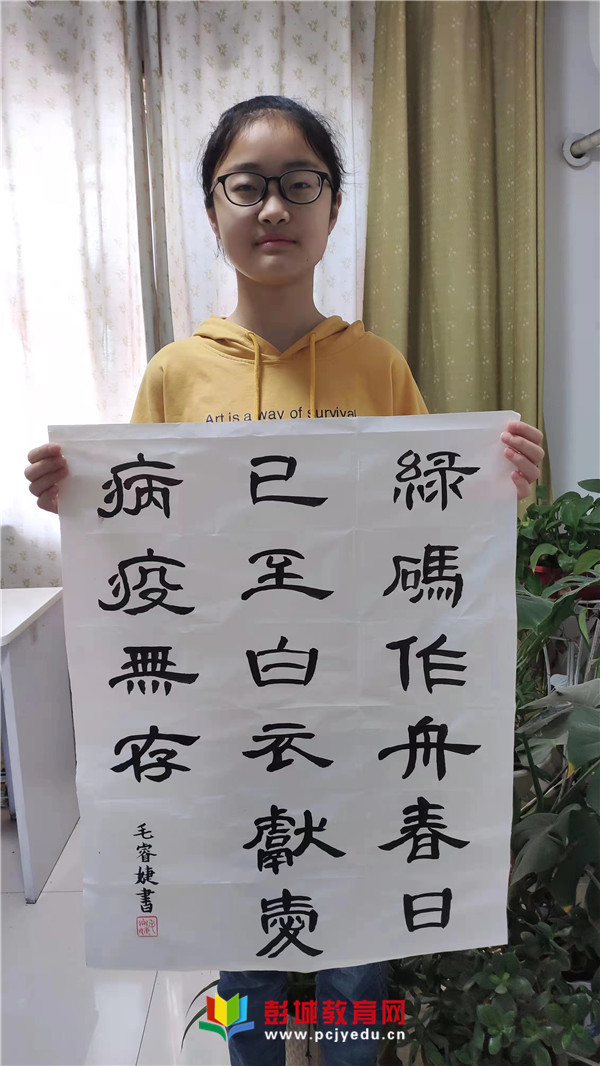 Art is a way of survival
綠碼作舟春日
已至白衣獻愛
病疫無存
毛睿婕書
彭城教育网
www.pcjyedu.cn